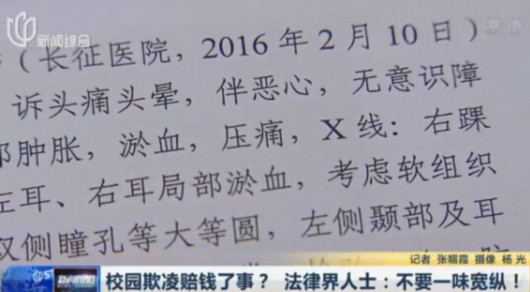 新闻综合
（长征医院，2016年2月10日）
诉头痛头晕，伴恶心，无意识障
肿胀，淤血，压痛，X线：右踝
左耳、右耳局部淤血，考虑软组织
双侧瞳孔等大等圆，左侧颞部及耳
记者 张帼霞 摄像 杨光
校园欺凌赔钱了事？ 法律界人士：不要一味宽纵！